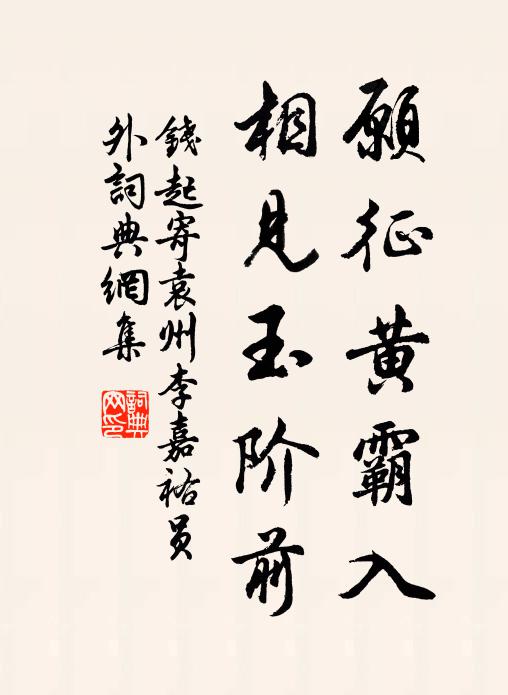 願征黄霸入
相見玉阶前
錢起寄袁州李嘉祐員
外詞典網集
詞典
网印